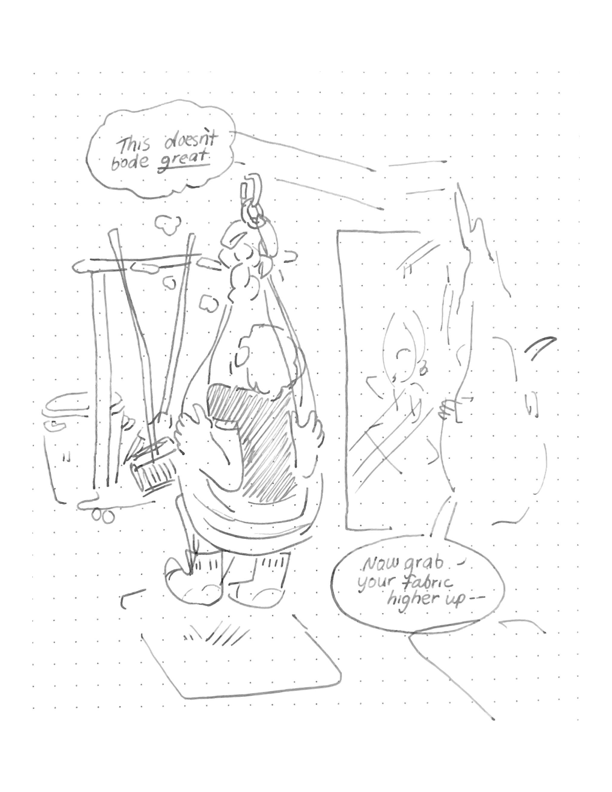 This doesn't
bode great.
Now grab -
your fabric
higher up--